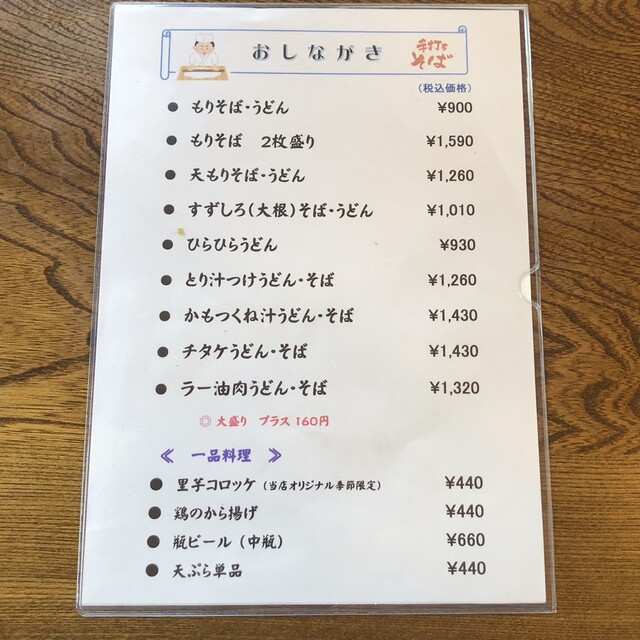 おしながき
手打ち
そば
（税込価格）
● もりそば・うどん ¥900
● もりそば 2枚盛り ¥1,590
● 天もりそば・うどん ¥1,260
● すずしろ（大根）そば・うどん ¥1,010
● ひらひらうどん ¥930
● とり汁つけうどん・そば ¥1,260
● かもつくね汁うどん・そば ¥1,430
● チタケうどん・そば ¥1,430
● ラー油肉うどん・そば ¥1,320
◎ 大盛り プラス 160円
≪ 一品料理 ≫
● 里芋コロッケ（当店オリジナル季節限定） ¥440
● 鶏のから揚げ ¥440
● 瓶ビール（中瓶） ¥660
● 天ぷら単品 ¥440